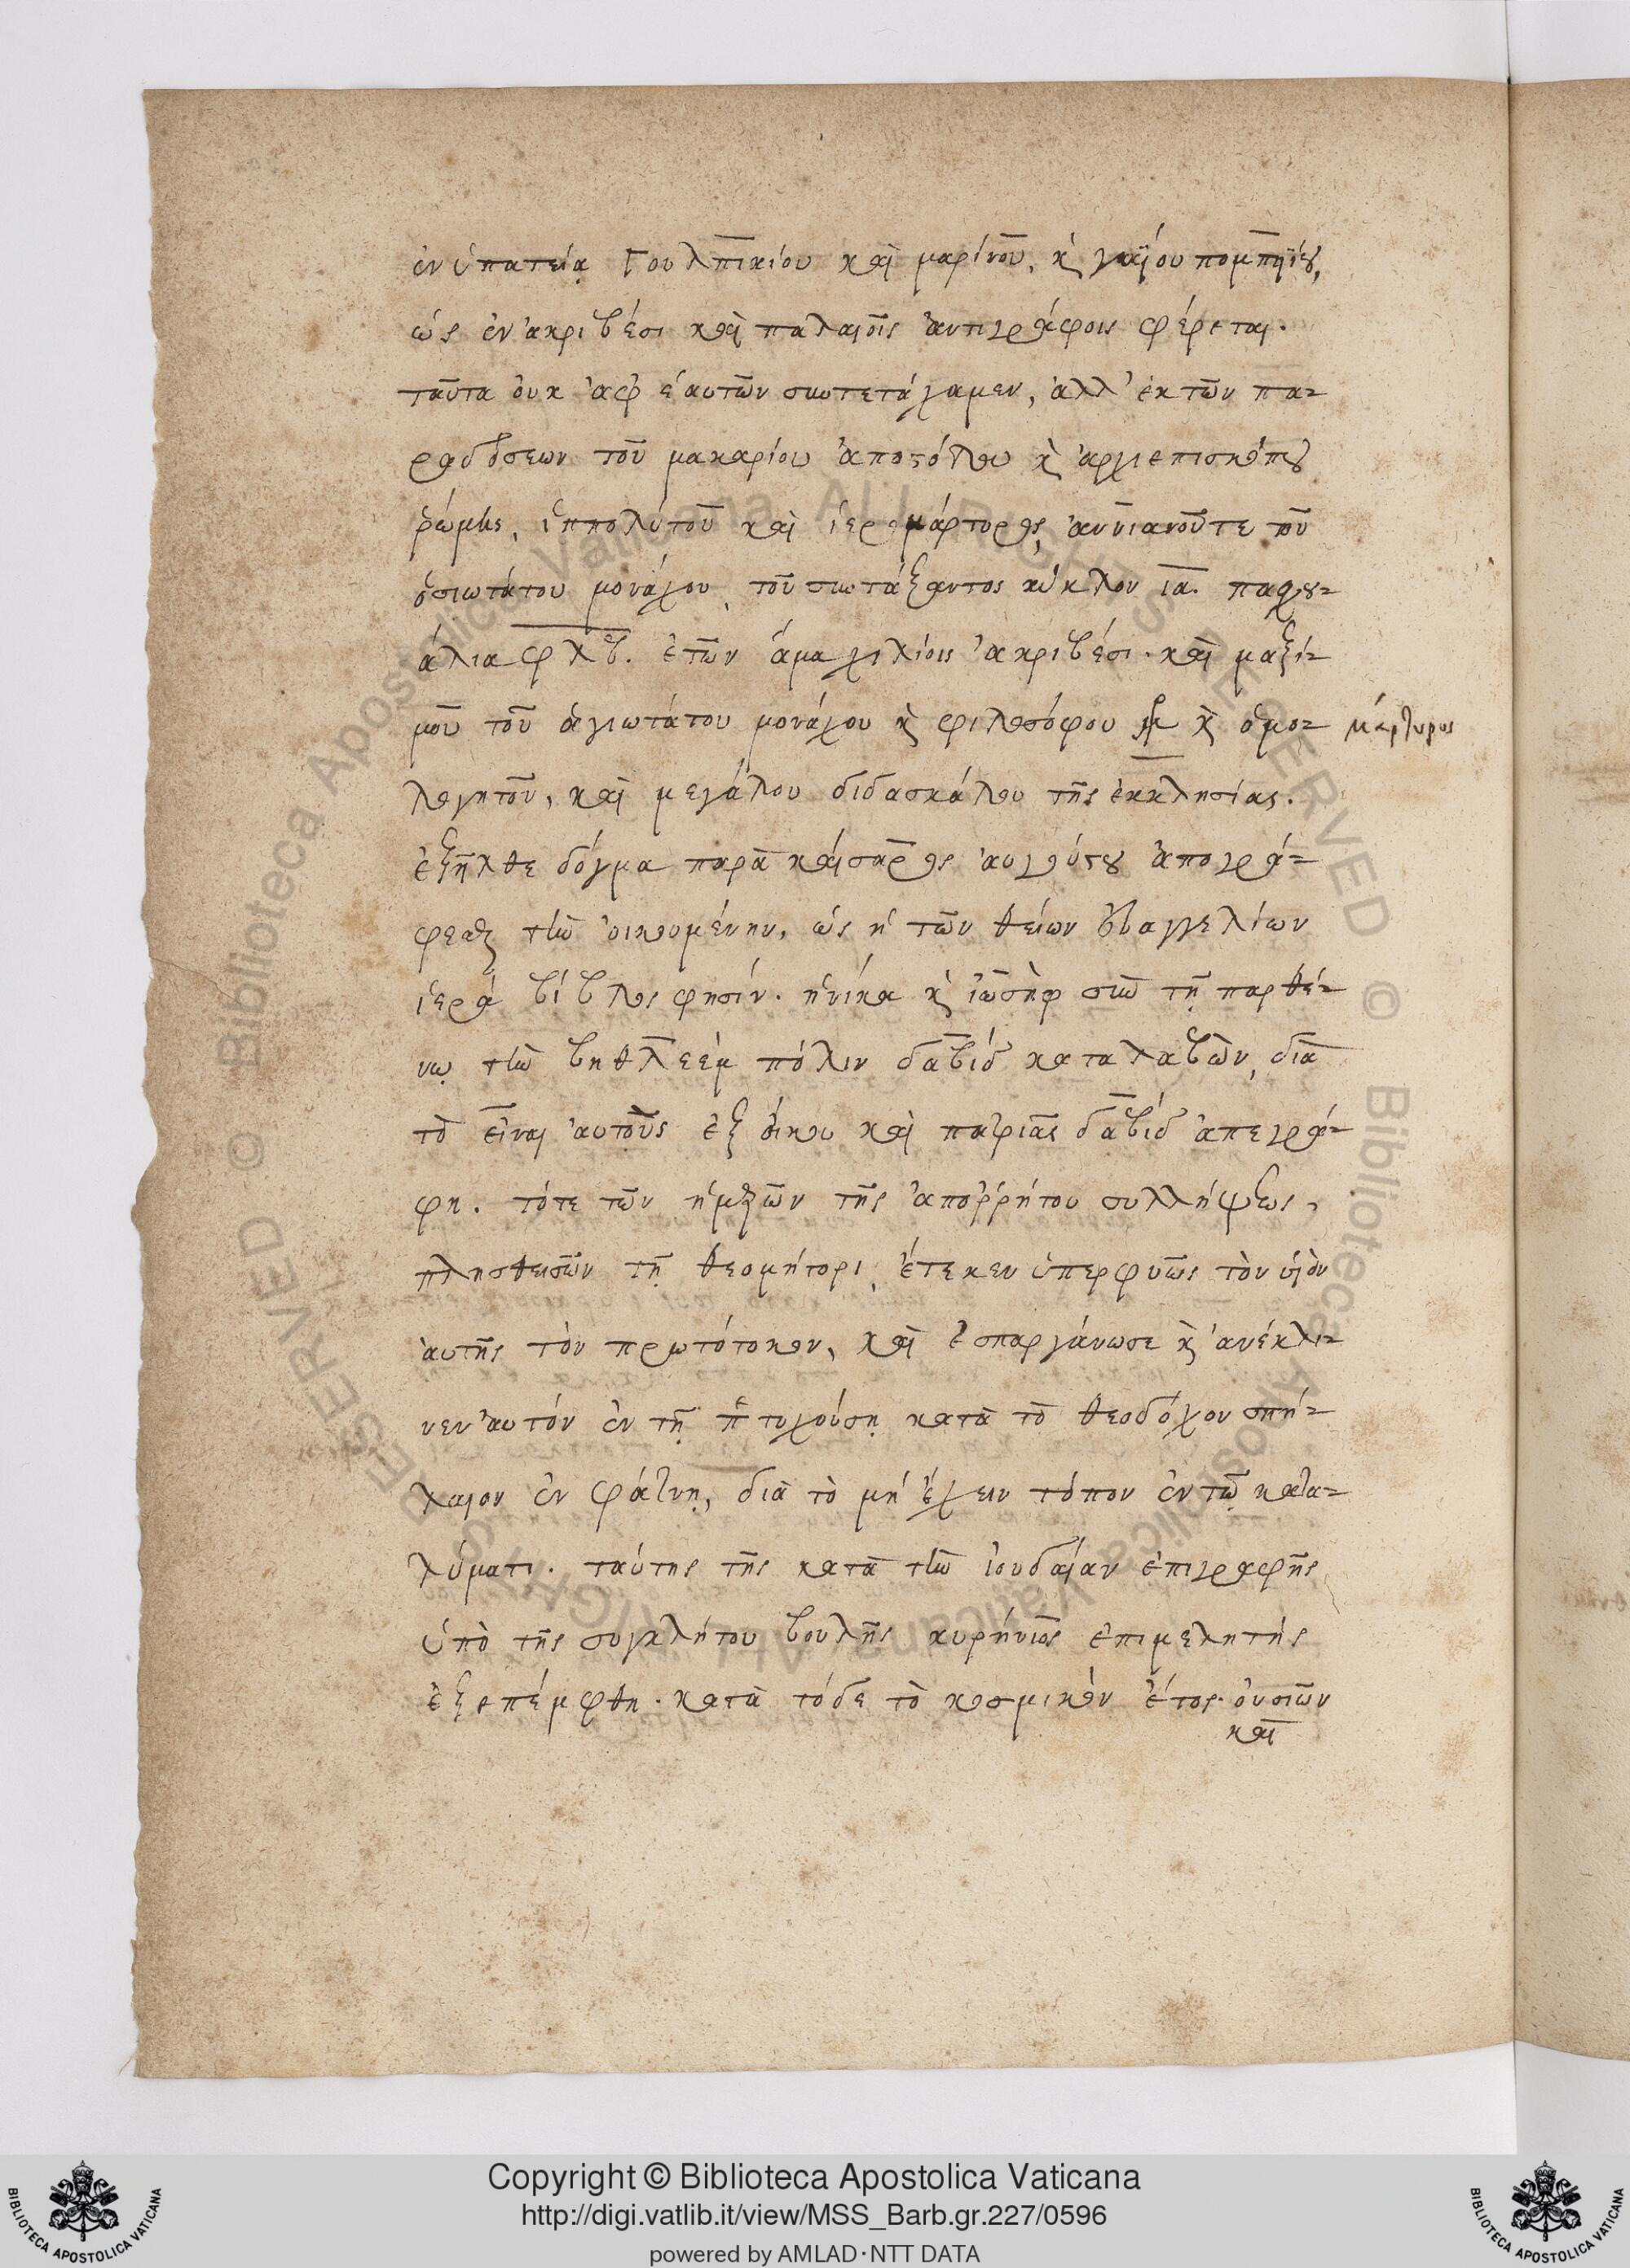 ἐν ὑπατείᾳ Γουλπικίου καὶ μαρίνου, κὶ γαΐου πομπηΐου,
ὡς ἐν ἀκριβέσι καὶ παλαιοῖς ἀντιγράφοις φέρεται.
ταῦτα ὀυκ ἀφ' ἑαυτῶν συντετάχαμεν, ἀλλ' ἐκ τῶν πα-
ραδόσεων τοῦ μακαρίου ἀποστόλου κὶ ἀρχιεπισκόπου
ῥώμης, ἱππολύτου καὶ ἱερομάρτυρος, ἀννιανοῦ τε τοῦ
ὁσιωτάτου μονάχου, τοῦ συντάξαντος κύκλον ια. πασχου-
άλια φλβ. ἐτῶν ἅμα χιλίοις ἀκριβέσι. καὶ μαξί-
μου τοῦ ἁγιωτάτου μονάχου κὶ φιλοσόφου κὶ ὁμο- μάρτυρος
λογητοῦ, καὶ μεγάλου διδασκάλου τῆς ἐκκλησίας.
ἐξῆλθε δόγμα παρὰ καίσαρος ἀυγούστου ἀπογρά-
φεσθαι τὴν ὀικουμένην, ὡς ἡ τῶν θείων ἐυαγγελίων
ἱερὰ βίβλος φησίν. ἡνίκα κὶ ἰωσὴφ σὺν τῇ παρθέ-
νῳ τὴν βηθλεὲμ πόλιν δαβὶδ καταλαβὼν, διὰ
τὸ εἶναι ἀυτοὺς ἐξ ὄικου καὶ πατριᾶς δαβὶδ ἀπεγρά-
φη. τότε τῶν ἡμερῶν τῆς ἀποῤῥήτου συλλήψεως,
πλησθεισῶν τῇ θεομήτορι, ἔτεκεν ὑπερφυῶς τὸν υἱὸν
ἀυτῆς τὸν πρωτότοκον, καὶ ἐσπαργάνωσε κὶ ἀνέκλι-
νεν ἀυτόν ἐν τῇ π τυχούσῃ κατὰ τὸ θεοδόχον σπή-
λαιον ἐν φάτνῃ, διὰ τὸ μή ἔχειν τόπον ἐν τῷ κατα-
λύματι. ταύτης τῆς κατὰ τὴν ἰουδαίαν ἐπιγραφῆς
ὑπὸ τῆς συγκλήτου βουλῆς κυρήνιος ἐπιμελητής
ἐξεπέμφθη. κατὰ τόδε τὸ κοσμικὸν ἔτος. ὀυσιῶν
καὶ
Copyright © Biblioteca Apostolica Vaticana
http://digi.vatlib.it/view/MSS_Barb.gr.227/0596
powered by AMLAD·NTT DATA